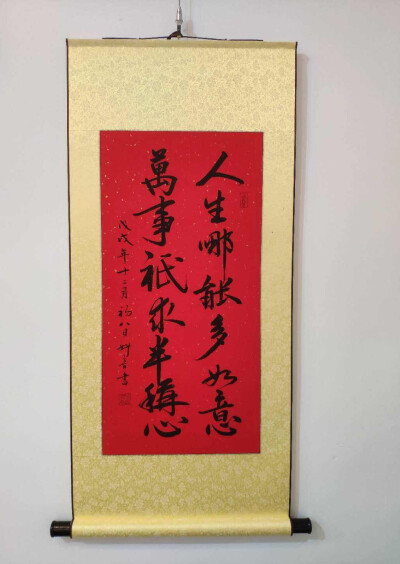 人生哪能多如意
萬事祇求半稱心
戊戌年十二月初八日
書